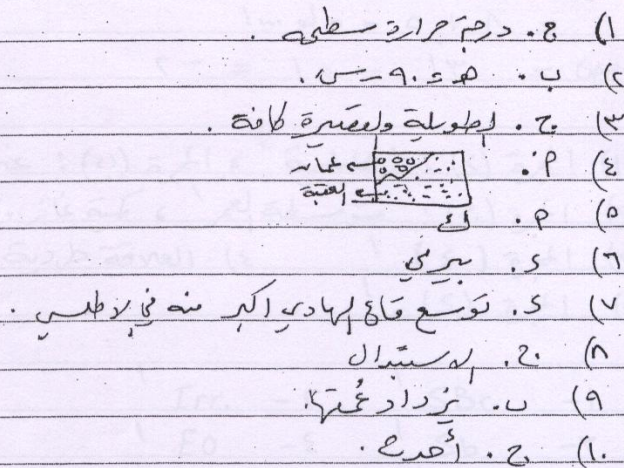 ١) ج. درجة حرارة سطحه .
٢) ب.
٣) ج. الطويلة والقصيرة كافة .
٤) م. عمان العقبة
٥) م. ك
٦) د. بيرمي
٧) د. توسع قاع الهادي اكبر منه في الاطلسي .
٨) ج. الاستبدال
٩) ب. يزداد عمقها.
١٠) ج. أحدث .